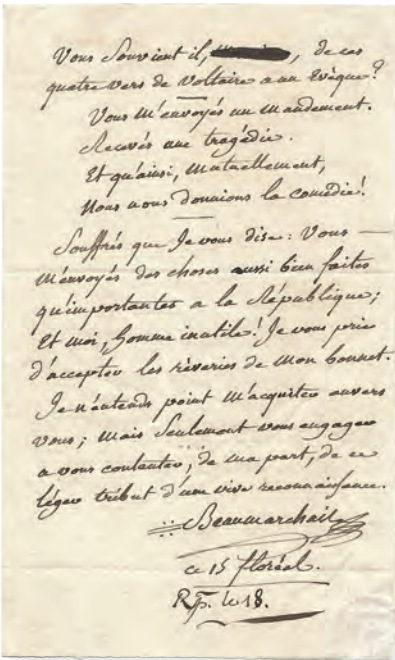 Vous Souvient il, , de ces
quatre vers de Voltaire a un Evêque?
Vous m'envoyés un mandement.
Recevés une tragédie.
Et qu'ainsi, mutuellement,
Nous nous donnions la comédie!
Souffrés que Je vous dise: Vous —
m'envoyés des choses aussi bien faites
qu'importantes a la République;
Et moi, homme inutile! Je vous prie
d'accepter les rêveries de mon bonnet.
Je n'entends point m'acquiter envers
vous; mais Seulement vous engager
a vous contenter, de ma part, de ce
léger tribut d'une vive reconnaissance.
Beaumarchais
ce 15 floréal.